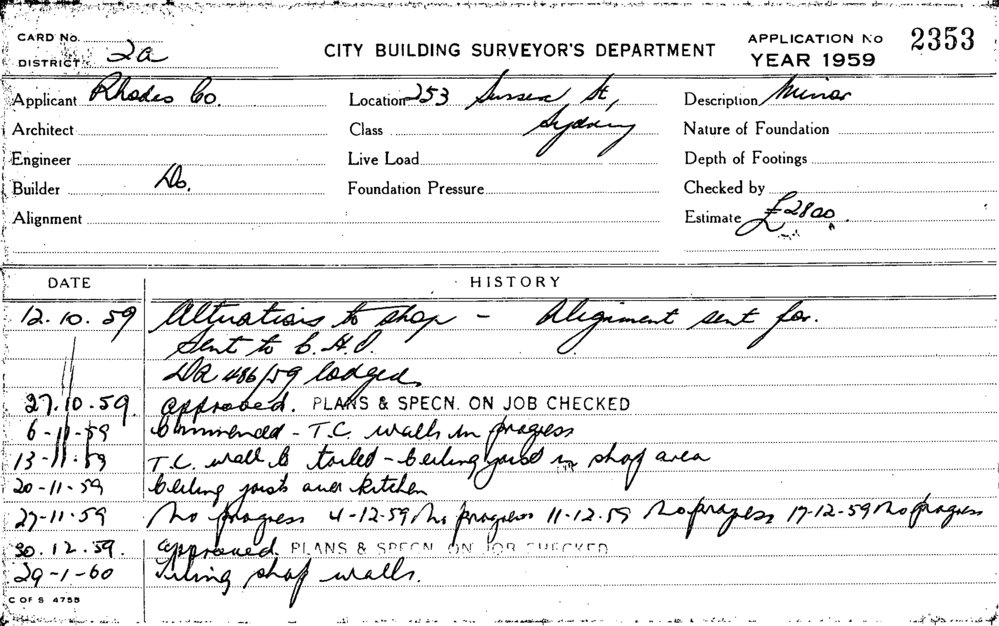 CARD No.
DISTRICT 2a
CITY BUILDING SURVEYOR'S DEPARTMENT
APPLICATION No 2353
YEAR 1959
Applicant Rhodes Co. Location 253 Sussex St, Description Minor
Architect Class Sydney Nature of Foundation
Engineer Live Load Depth of Footings
Builder Do. Foundation Pressure Checked by
Alignment Estimate £2800.
DATE HISTORY
12.10.59 Alterations to shop - Alignment sent for.
Sent to C.H.O.
DA 486/59 lodged
27.10.59. Approved. PLANS & SPECN. ON JOB CHECKED
6-11-59 Commenced - T.C. walls in progress
13-11-59 T.C. wall to toilet - Ceiling joist in shop area
20-11-59 Ceiling joists over kitchen
27-11-59 No progress 4-12-59 No progress 11-12-59 No progress 17-12-59 No progress
30.12.59. Approved. PLANS & SPECN. ON JOB CHECKED
29-1-60 Tiling shop walls.
C OF S 4755